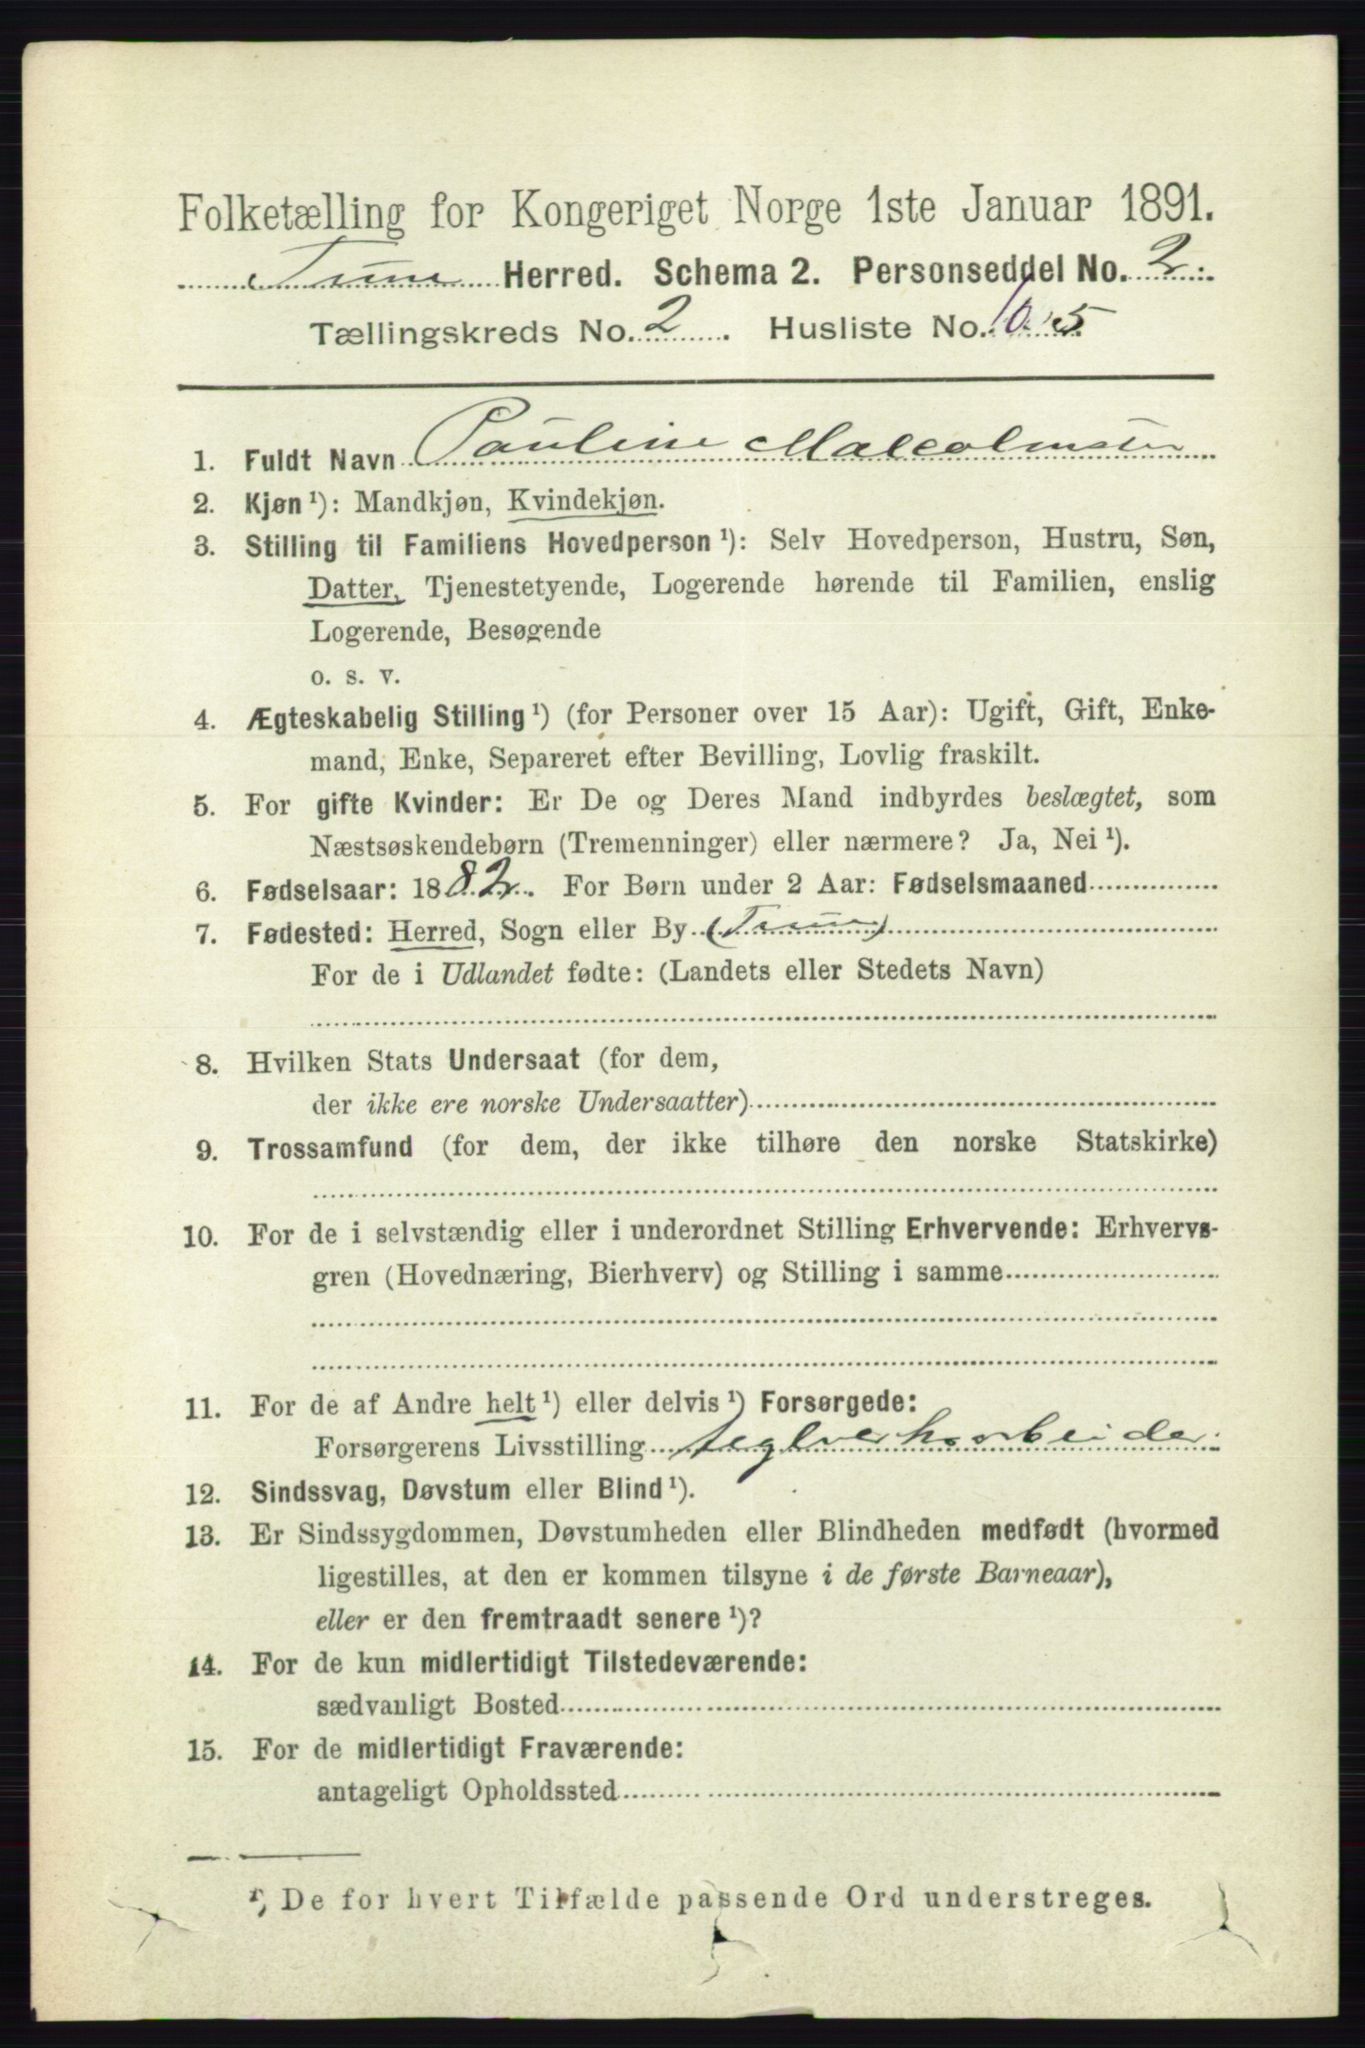 Folketælling for Kongeriget Norge 1ste Januar 1891.
Tune Herred. Schema 2. Personseddel No. 2.
Tællingskreds No. 2. Husliste No. 105
1. Fuldt Navn Pauline Malcolmsen
2. Kjøn ¹): Mandkjøn, Kvindekjøn.
3. Stilling til Familiens Hovedperson ¹): Selv Hovedperson, Hustru, Søn,
Datter, Tjenestetyende, Logerende hørende til Familien, enslig
Logerende, Besøgende
o. s. v.
4. Ægteskabelig Stilling ¹) (for Personer over 15 Aar): Ugift, Gift, Enke-
mand, Enke, Separeret efter Bevilling, Lovlig fraskilt.
5. For gifte Kvinder: Er De og Deres Mand indbyrdes beslægtet, som
Næstsøskendebørn (Tremenninger) eller nærmere? Ja, Nei ¹).
6. Fødselsaar: 1882. For Børn under 2 Aar: Fødselsmaaned
7. Fødested: Herred, Sogn eller By (Tune)
For de i Udlandet fødte: (Landets eller Stedets Navn)
8. Hvilken Stats Undersaat (for dem,
der ikke ere norske Undersaatter)
9. Trossamfund (for dem, der ikke tilhøre den norske Statskirke)
10. For de i selvstændig eller i underordnet Stilling Erhvervende: Erhvervs-
gren (Hovednæring, Bierhverv) og Stilling i samme
11. For de af Andre helt ¹) eller delvis ¹) Forsørgede:
Forsørgerens Livsstilling teglverksarbeider
12. Sindssvag, Døvstum eller Blind ¹).
13. Er Sindssygdommen, Døvstumheden eller Blindheden medfødt (hvormed
ligestilles, at den er kommen tilsyne i de første Barneaar),
eller er den fremtraadt senere ¹)?
14. For de kun midlertidigt Tilstedeværende:
sædvanligt Bosted
15. For de midlertidigt Fraværende:
antageligt Opholdssted
¹) De for hvert Tilfælde passende Ord understreges.